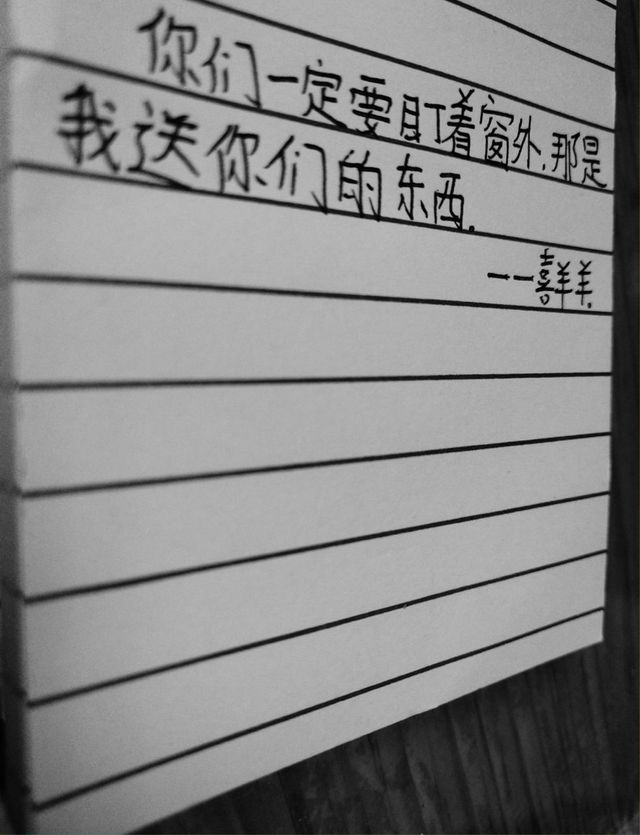 你们一定要盯着窗外,那是
我送你们的东西.
——喜羊羊.